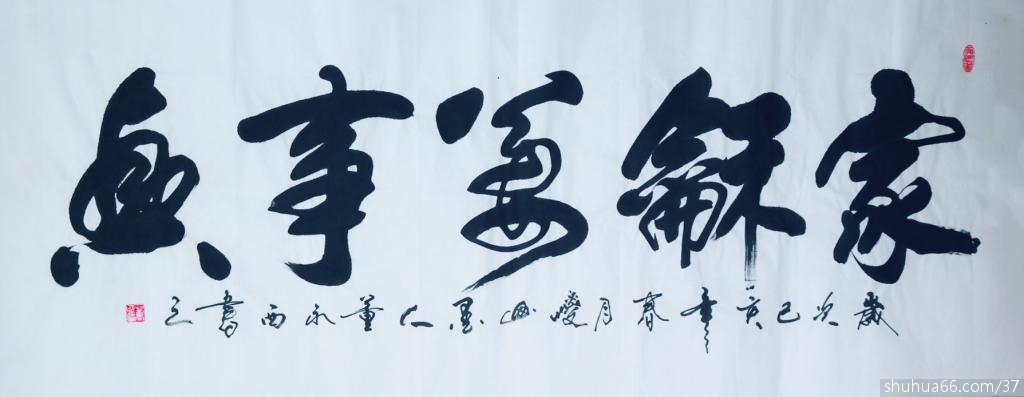 家龢萬事興
歲次己亥年春月墨人董永西書之
shuhua66.com/37